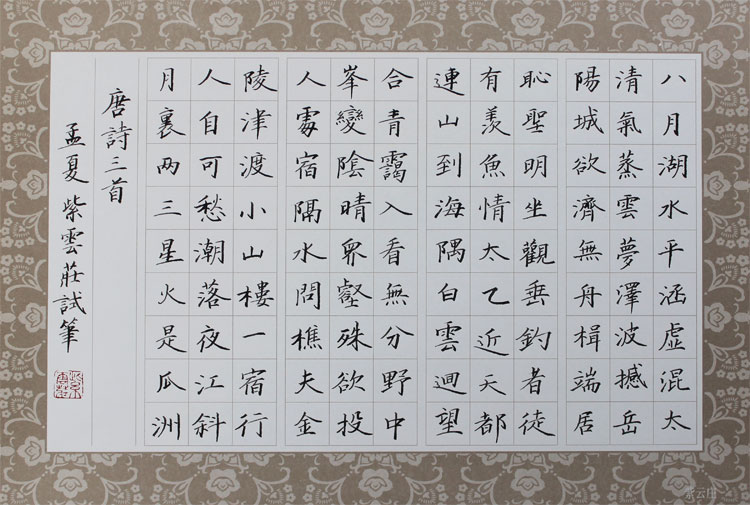 八月湖水平涵虛混太
清氣蒸雲夢澤波撼岳
陽城欲濟無舟楫端居
恥聖明坐觀垂釣者徒
有羨魚情太乙近天都
連山到海隅白雲迴望
合青靄入看無分野中
峯變陰晴眾壑殊欲投
人處宿隔水問樵夫金
陵津渡小山樓一宿行
人自可愁潮落夜江斜
月裏兩三星火是瓜洲
唐詩三首
孟夏紫雲莊試筆
紫云庄